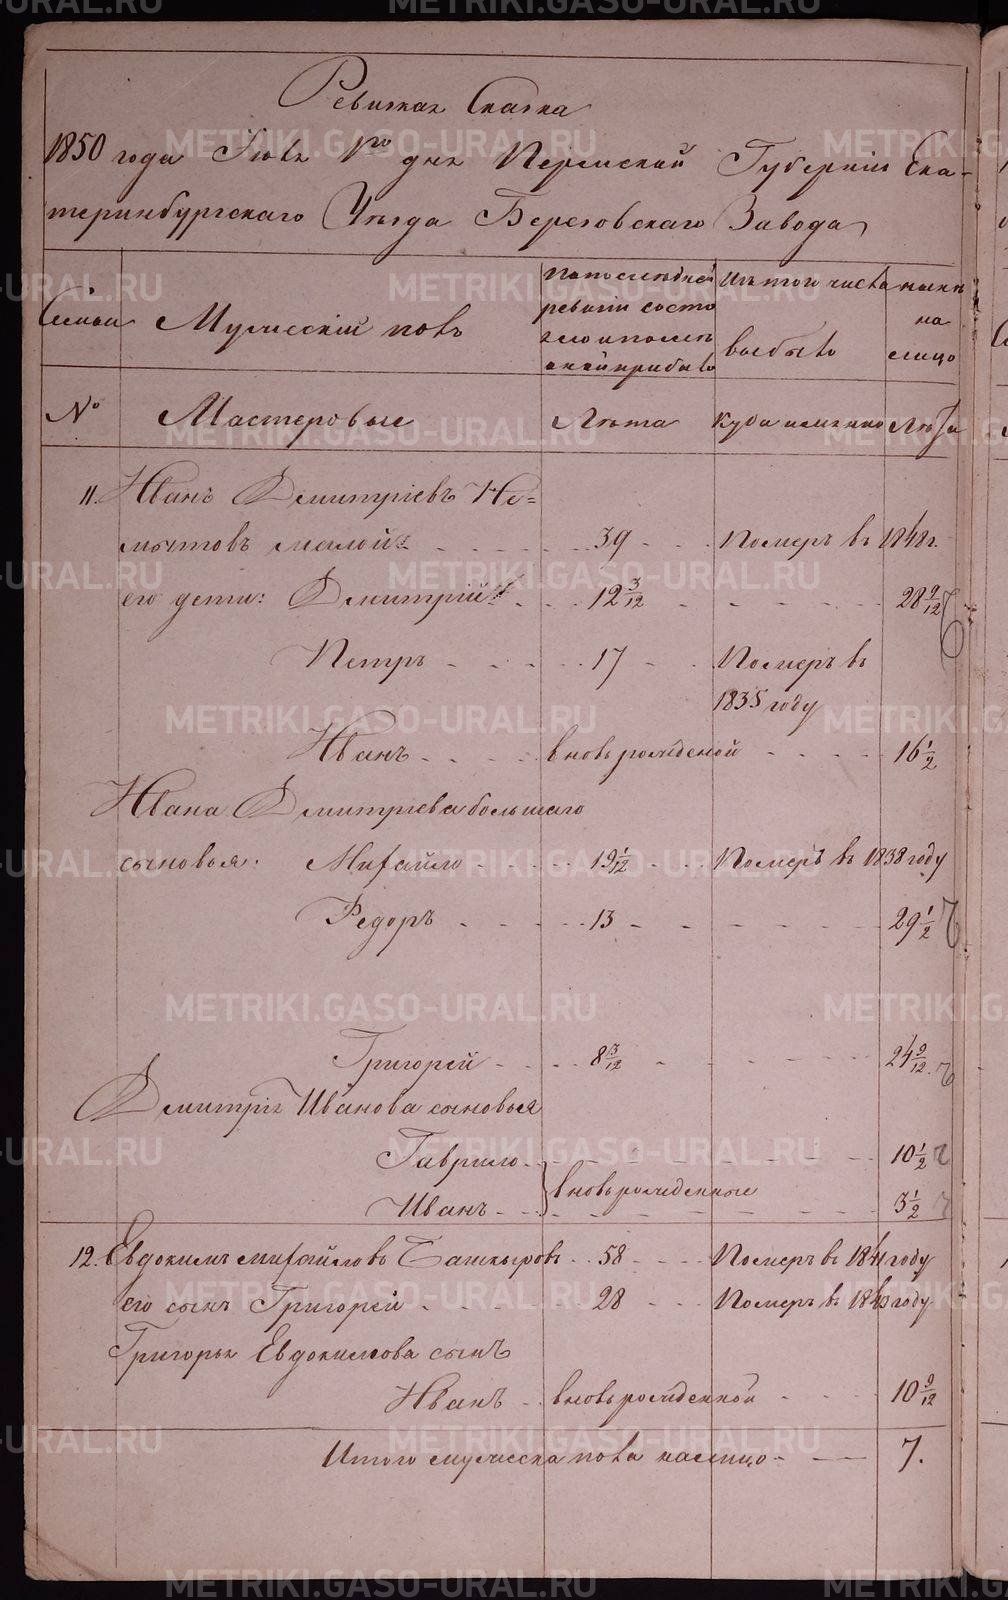 Ревизкая Сказка
1850 года Июля 1го дня Пермской Губернiи Ека-
теринбургскаго Уезда Березовскаго Завода
Семьи
Мужескiй полъ
По последней
ревизiи состо
яло и после
оной прибыло
Изъ того числа
выбыло
ныне
на
лицо
№
Мастеровые
Лета
Куда именно
Лета
11. Иванъ Дмитрiевъ Не=
мытовъ малой 39 Померъ въ 1848 г.
его дети: Дмитрiй 12 3/12 28 9/12
Петръ 17 Померъ въ
1835 году
Иванъ вновь рожденой 16 1/2
Ивана Дмитрiева большаго
сыновья: Михайло 19 1/12 Померъ въ 1838 году
Федоръ 13 29 1/2
Григорей 8 3/12 24 9/12
Дмитрiя Иванова сыновья
Гаврило 10 1/2
вновь рожденные
Иванъ 3 1/2
12. Евдокимъ Михайловъ Башкыровъ 58 Померъ въ 1841 году
его сынъ Григорей 28 Померъ въ 1843 году
Григорья Евдокимова сынъ
Иванъ вновь рожденной 10 9/12
Итого мужеска пола налицо 7.
METRIKI.GASO-URAL.RU